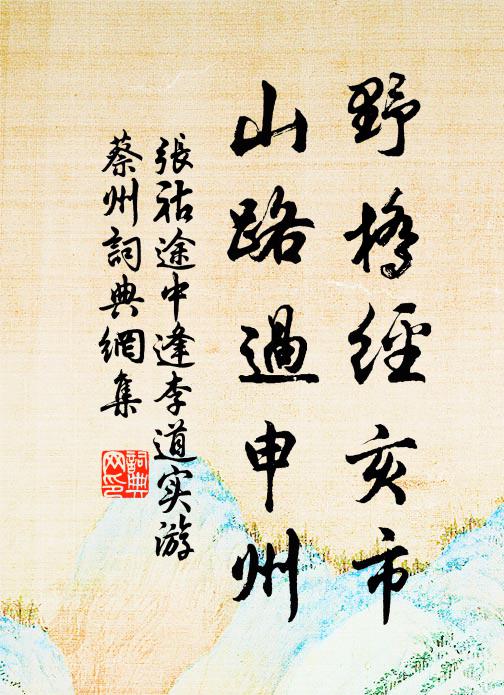 野橋經亥市
山路過申州
張祜途中逢李道实游
蔡州詞典網集
詞典
网印